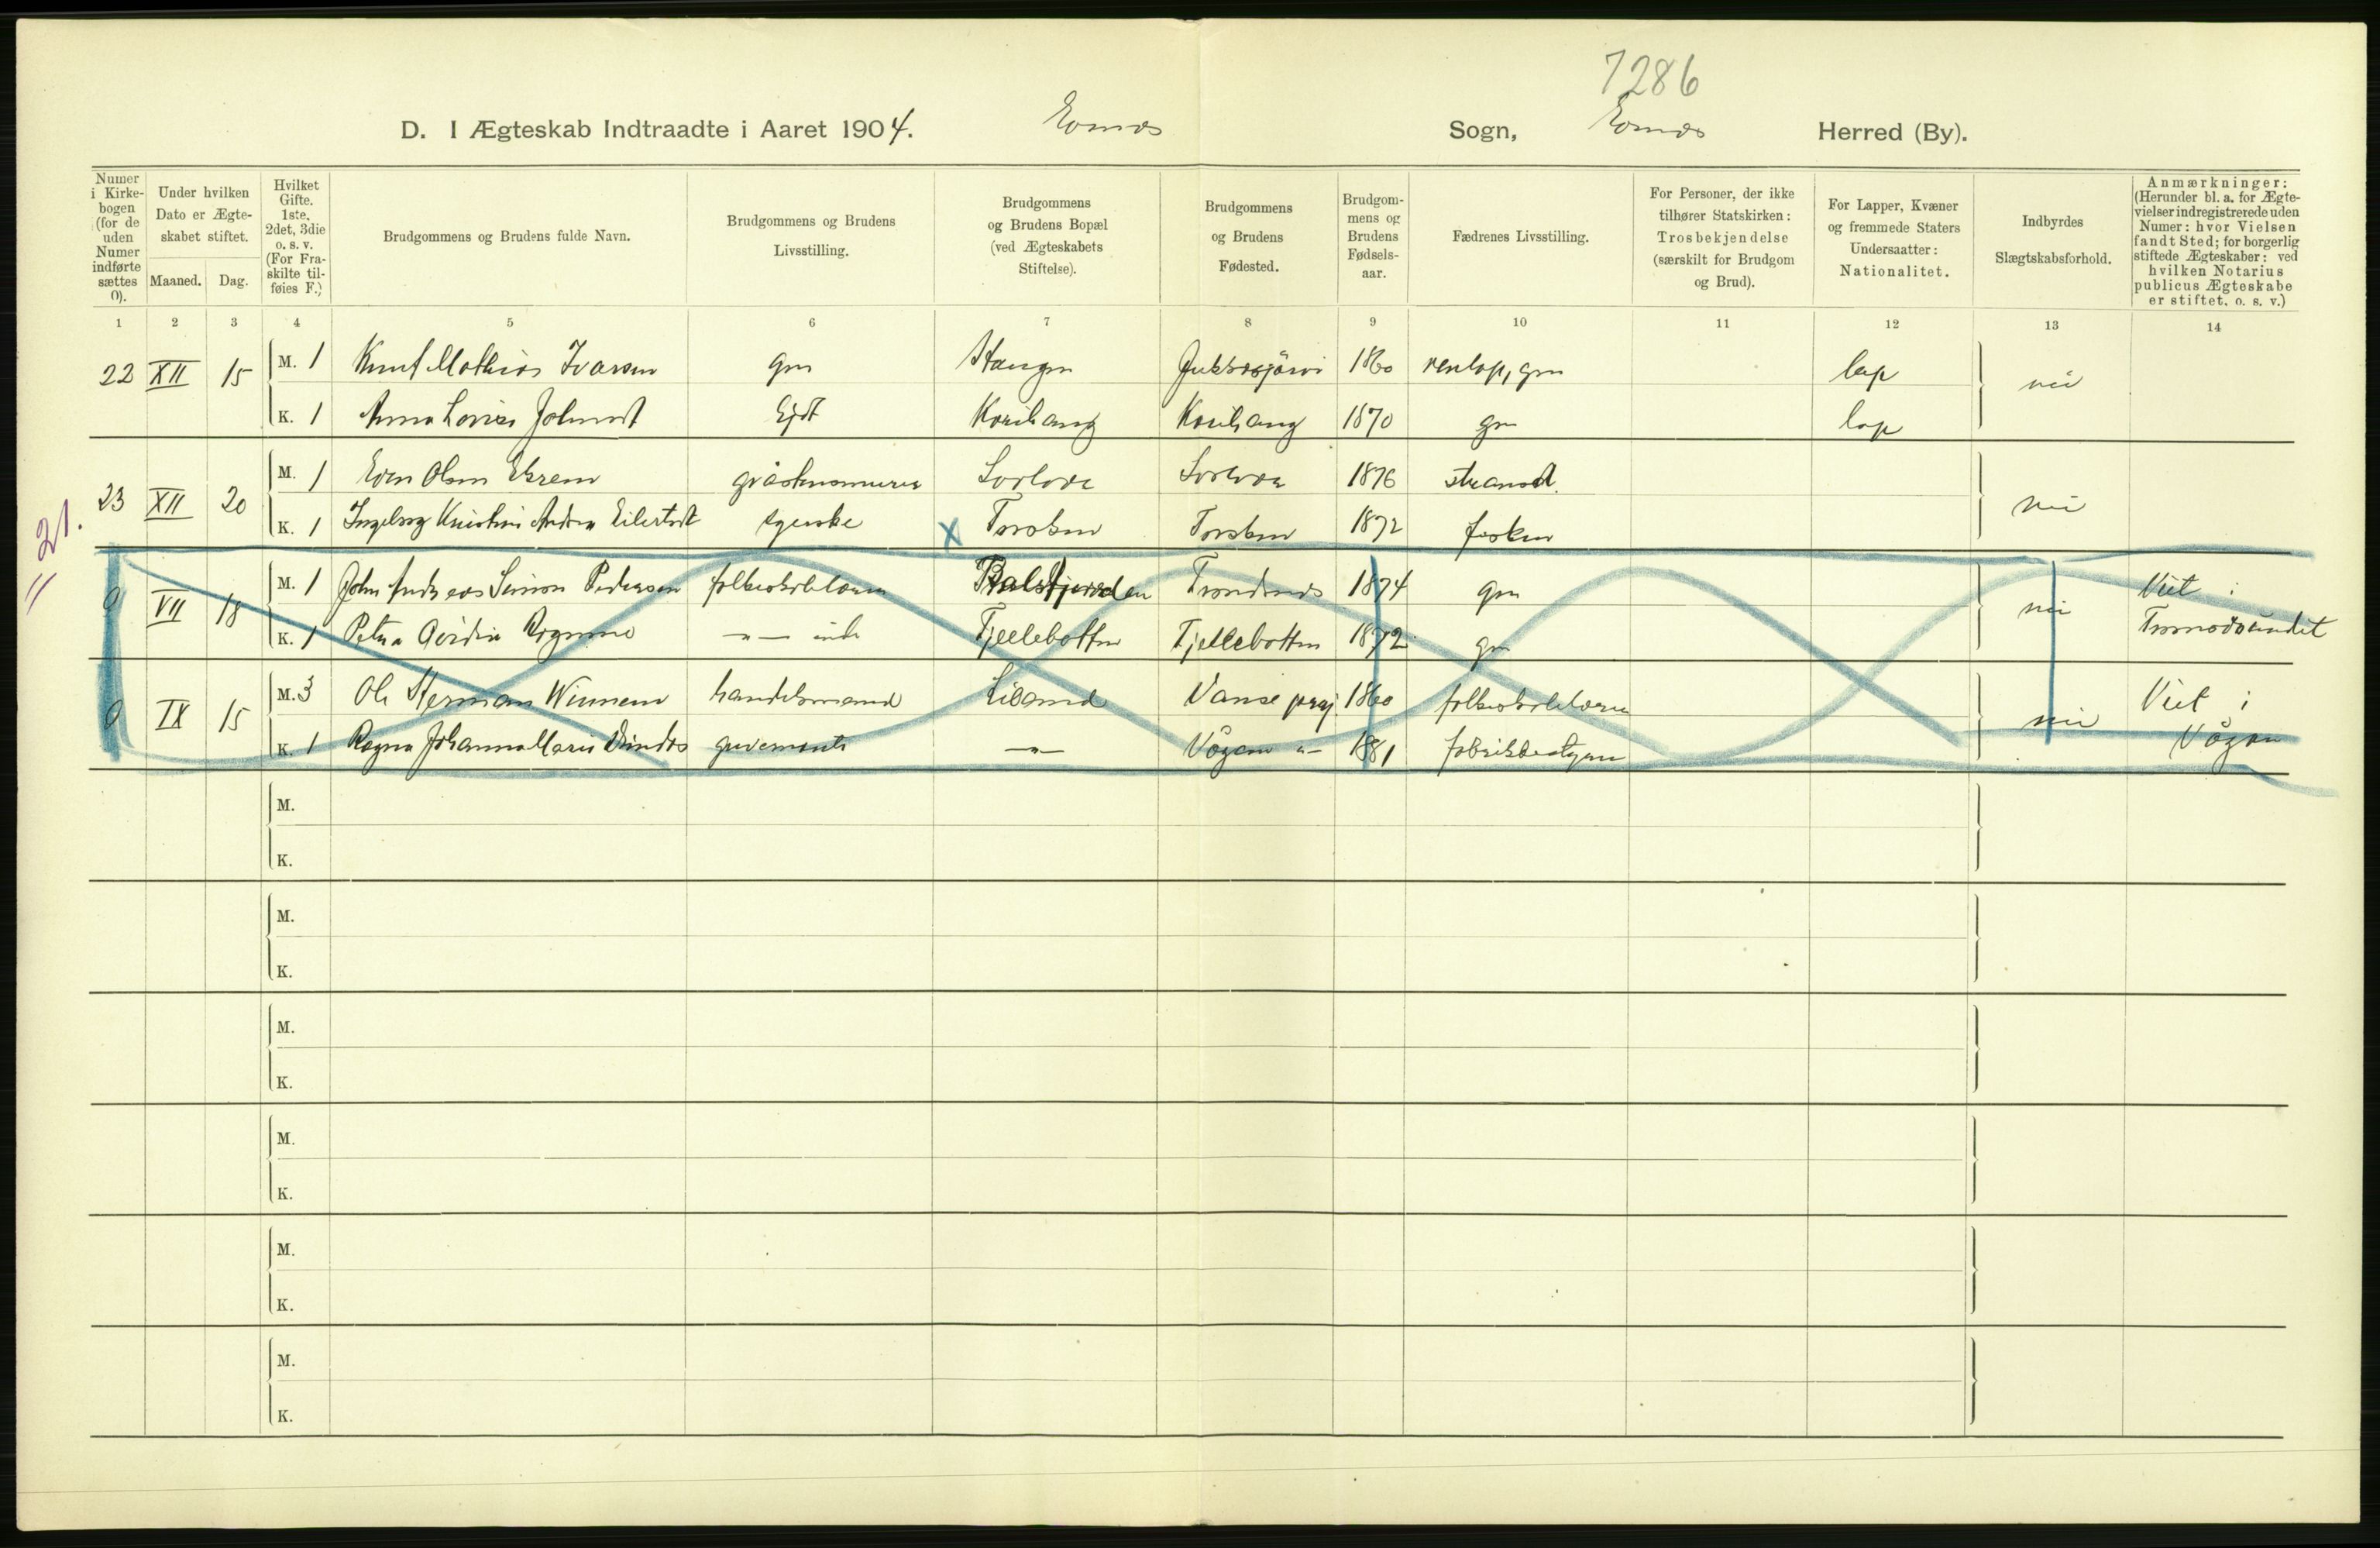 7286
D. I Ægteskab Indtraadte i Aaret 1904. Sogn, Herred (By).
Numer i Kirkebogen (for de uden Numer indførte sættes 0).
Under hvilken Dato er Ægteskabet stiftet.
Maaned. Dag.
Hvilket Gifte. 1ste, 2det, 3die o. s. v. (For Fraskilte tilføies F.)
Brudgommens og Brudens fulde Navn.
Brudgommens og Brudens Livsstilling.
Brudgommens og Brudens Bopæl (ved Ægteskabets Stiftelse).
Brudgommens og Brudens Fødested.
Brudgommens og Brudens Fødselsaar.
Fædrenes Livsstilling.
For Personer, der ikke tilhører Statskirken: Trosbekjendelse (særskilt for Brudgom og Brud).
For Lapper, Kvæner og fremmede Staters Undersaatter: Nationalitet.
Indbyrdes Slægtskabsforhold.
Anmærkninger: (Herunder bl. a. for Ægtevielser indregistrerede uden Numer: hvor Vielsen fandt Sted; for borgerlig stiftede Ægteskaber: ved hvilken Notarius publicus Ægteskabe er stiftet, o. s. v.)
1 2 3 4 5 6 7 8 9 10 11 12 13 14
22 XII 15 M. 1 Knut Mathias Ivarsen gm Stangen 1860 renlap, gm lap nei
K. 1 Anna Lovisa Johnsdt Korihang Korihang 1870 gm lap
23 XII 20 M. 1 Olsen 1876 nei
K. 1 Ingeborg Kristine Andrea Eilertsdt syerske X Torsken Torsken 1872
= 21.
0 VII 18 M. 1 John Andreas Simon Pedersen folkeskolelærer Balsfjorden Trondenes 1874 gm nei Viet i
K. 1 Petra -"- inde Tjellebotten Tjellebotten 1872 gm Tromsøsundet
0 IX 15 M. 3 Ole Herman handelsmand Vanse præj. 1860 folkeskolelærer nei Viet i
K. 1 Ragna Johanna Marie guvernante -"- Vågan -"- 1881 fabrikbestyrer Vågan
M.
K.
M.
K.
M.
K.
M.
K.
M.
K.
M.
K.